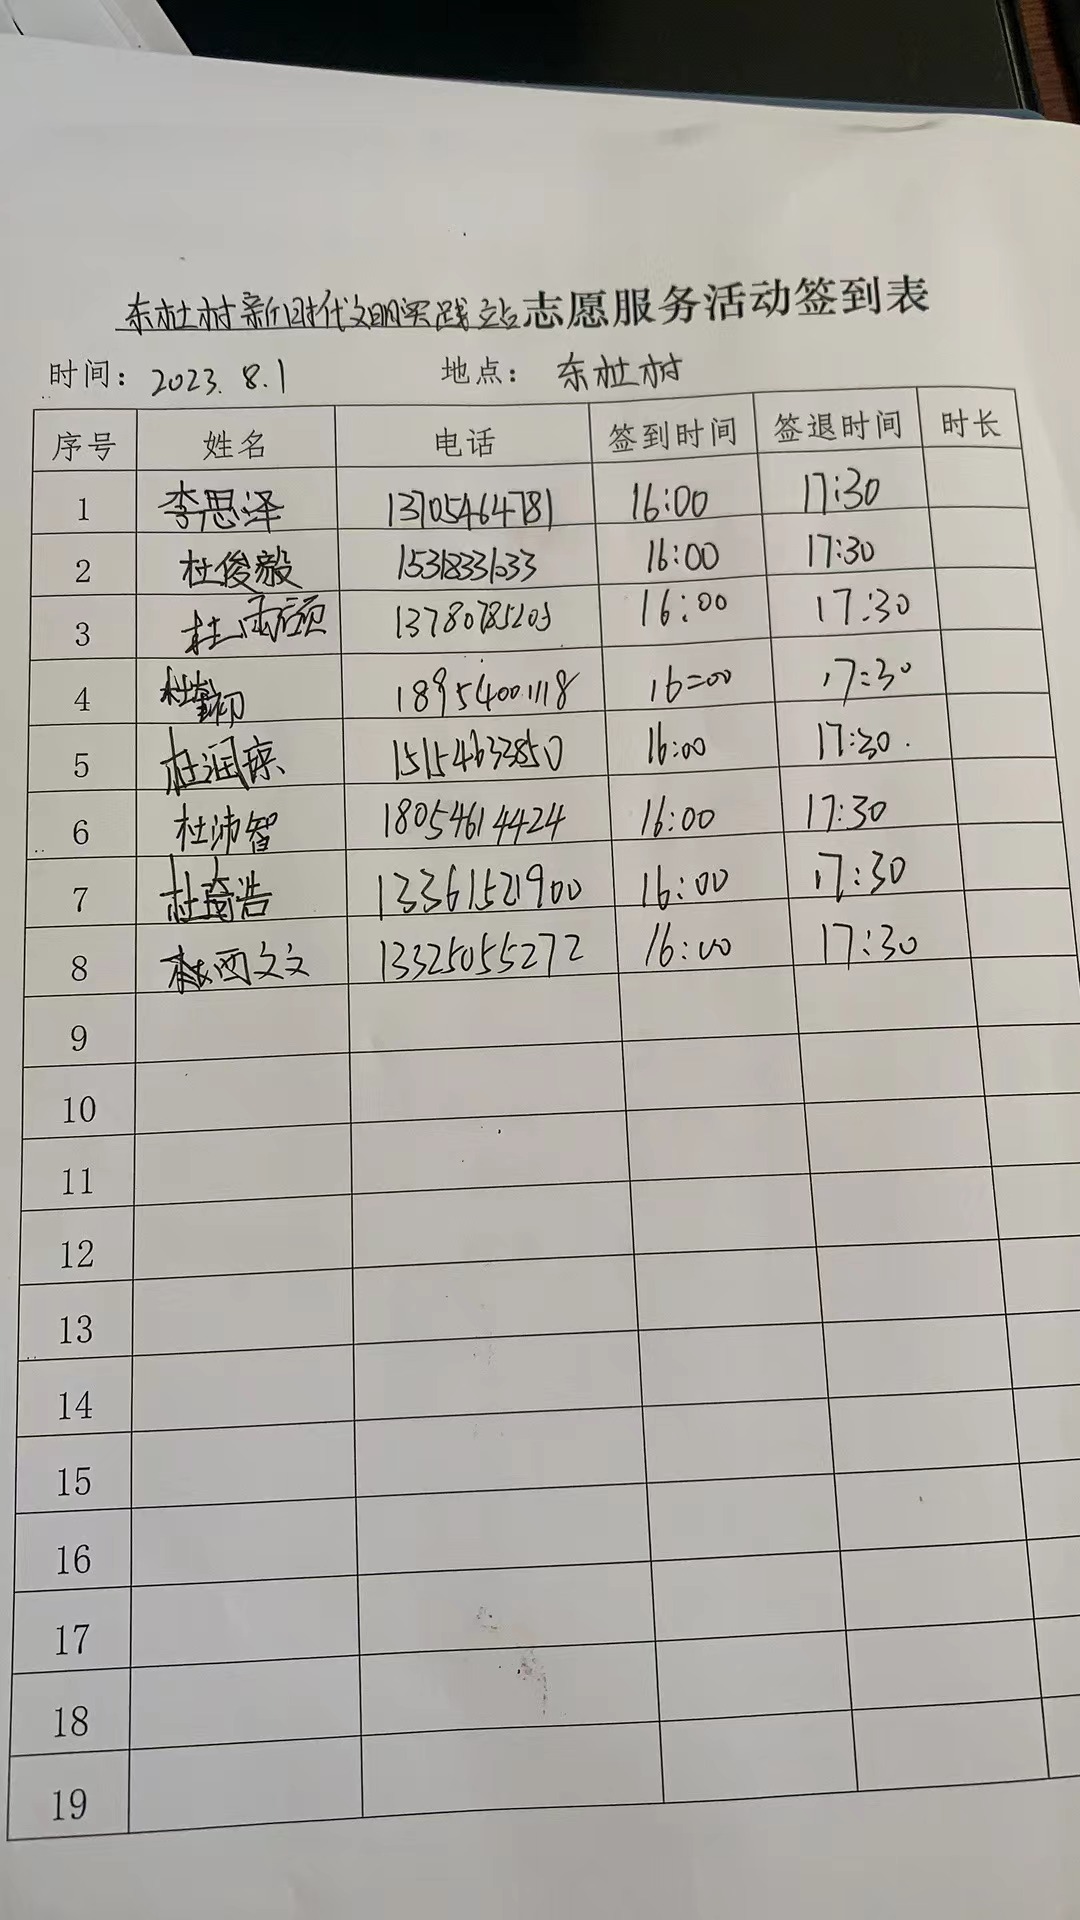 东杜村新时代文明实践站志愿服务活动签到表
时间: 2023.8.1 地点: 东杜村
序号 姓名 电话 签到时间 签退时间 时长
1 李思泽 13705464781 16:00 17:30
2 杜俊毅 16:00 17:30
3 杜雨颀 13780785203 16:00 17:30
4 18954001118 16:00 17:30
5 杜润 15154633850 16:00 17:30
6 杜沛智 18054614424 16:00 17:30
7 杜琦浩 13361521900 16:00 17:30
8 13325055272 16:00 17:30
9
10
11
12
13
14
15
16
17
18
19